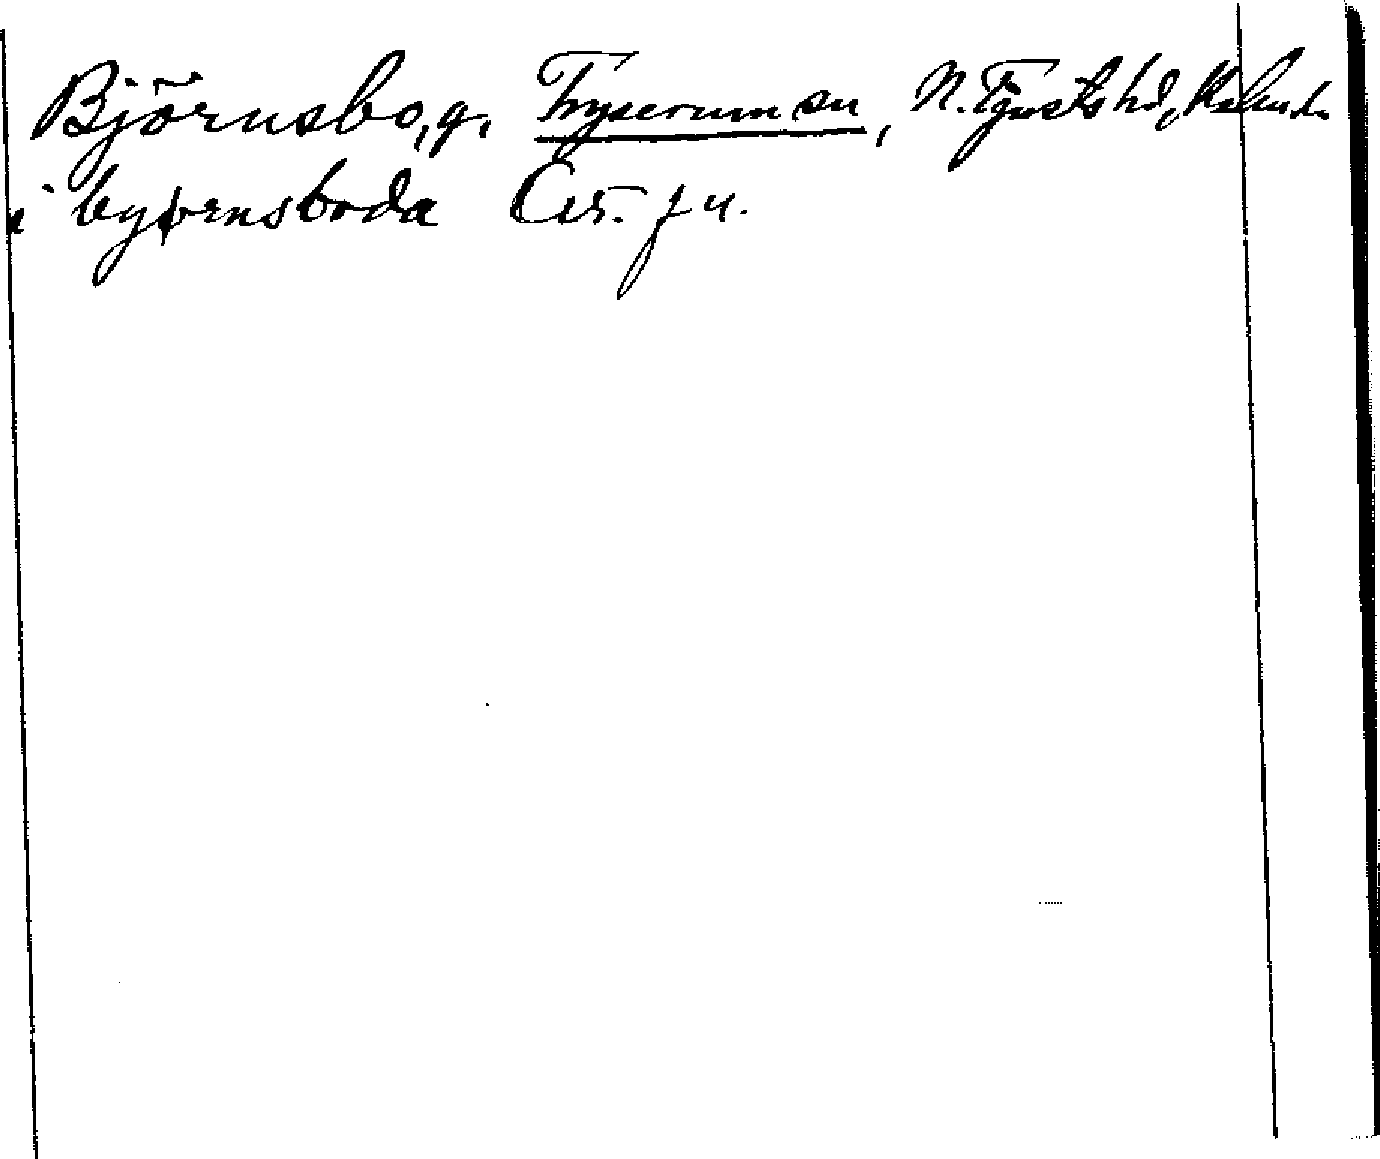 Björnsbo, g. Tryserum sn, N. Tjusts hd, Kalm. l.
i byørnsboda